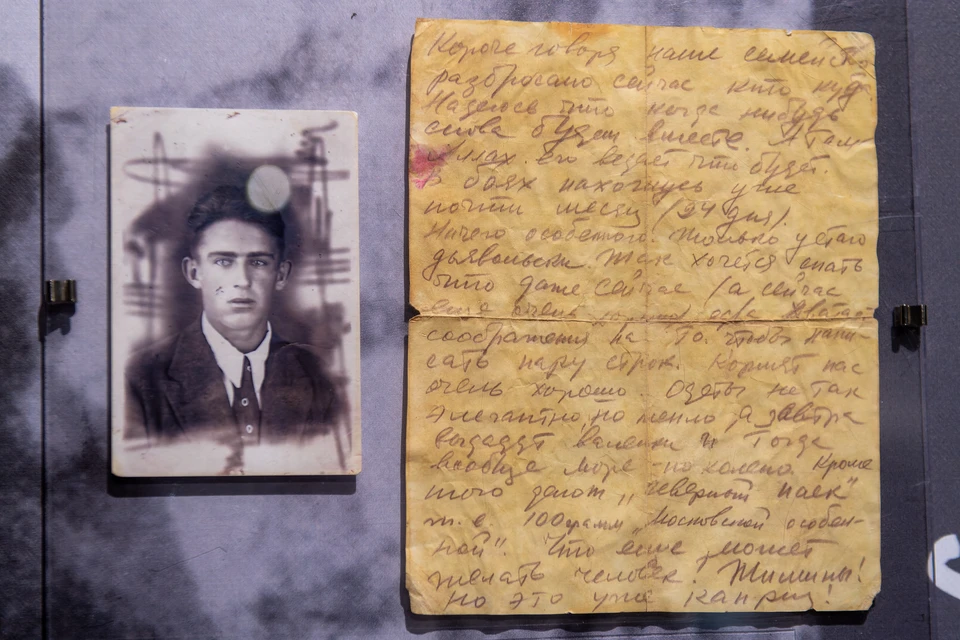 Короче говоря наше семейство
разбросано сейчас кто куда
Надеюсь что когда нибудь
снова будем вместе. А там
Аллах его ведает что будет.
В боях нахожусь уже
почти месяц (24 дня).
Ничего особенного. Только устаю
дьявольски. Так хочется спать
что даже сейчас (а сейчас
еще очень едва хватает
соображения на то, чтобы напи-
сать пару строк. Кормят нас
очень хорошо. Одеты не так
элегантно, но тепло, а завтра
выдадут валенки и тогда
вообще море по колено. Кроме
того дают „северный паек"
т. е. 100 грамм „Московской особен-
ной". Что еще может
желать человек! Тишины!
Но это уже каприз!